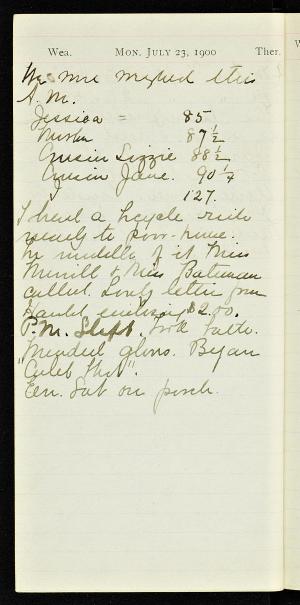 Wea. MON. JULY 23, 1900 Ther.
We were weighed this
A.M.
Jessica = 85
87 1/2
Cousin Lizzie 88 1/2
Cousin Jane. 90 1/4
127.
I had a bicycle ride
nearly to poor-house.
In middle of it Miss
Merrill & Miss Bateman
called. Lovely letter from
enclosing $2.00.
P.M. Slept.
Mended gloves. Began
"Caleb West".
Eve. Sat on porch.